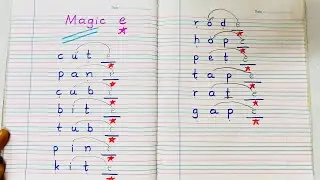 Magic e
cute
pane
cube
bite
tube
pine
kite
rode
hope
pete
tape
rate
gape